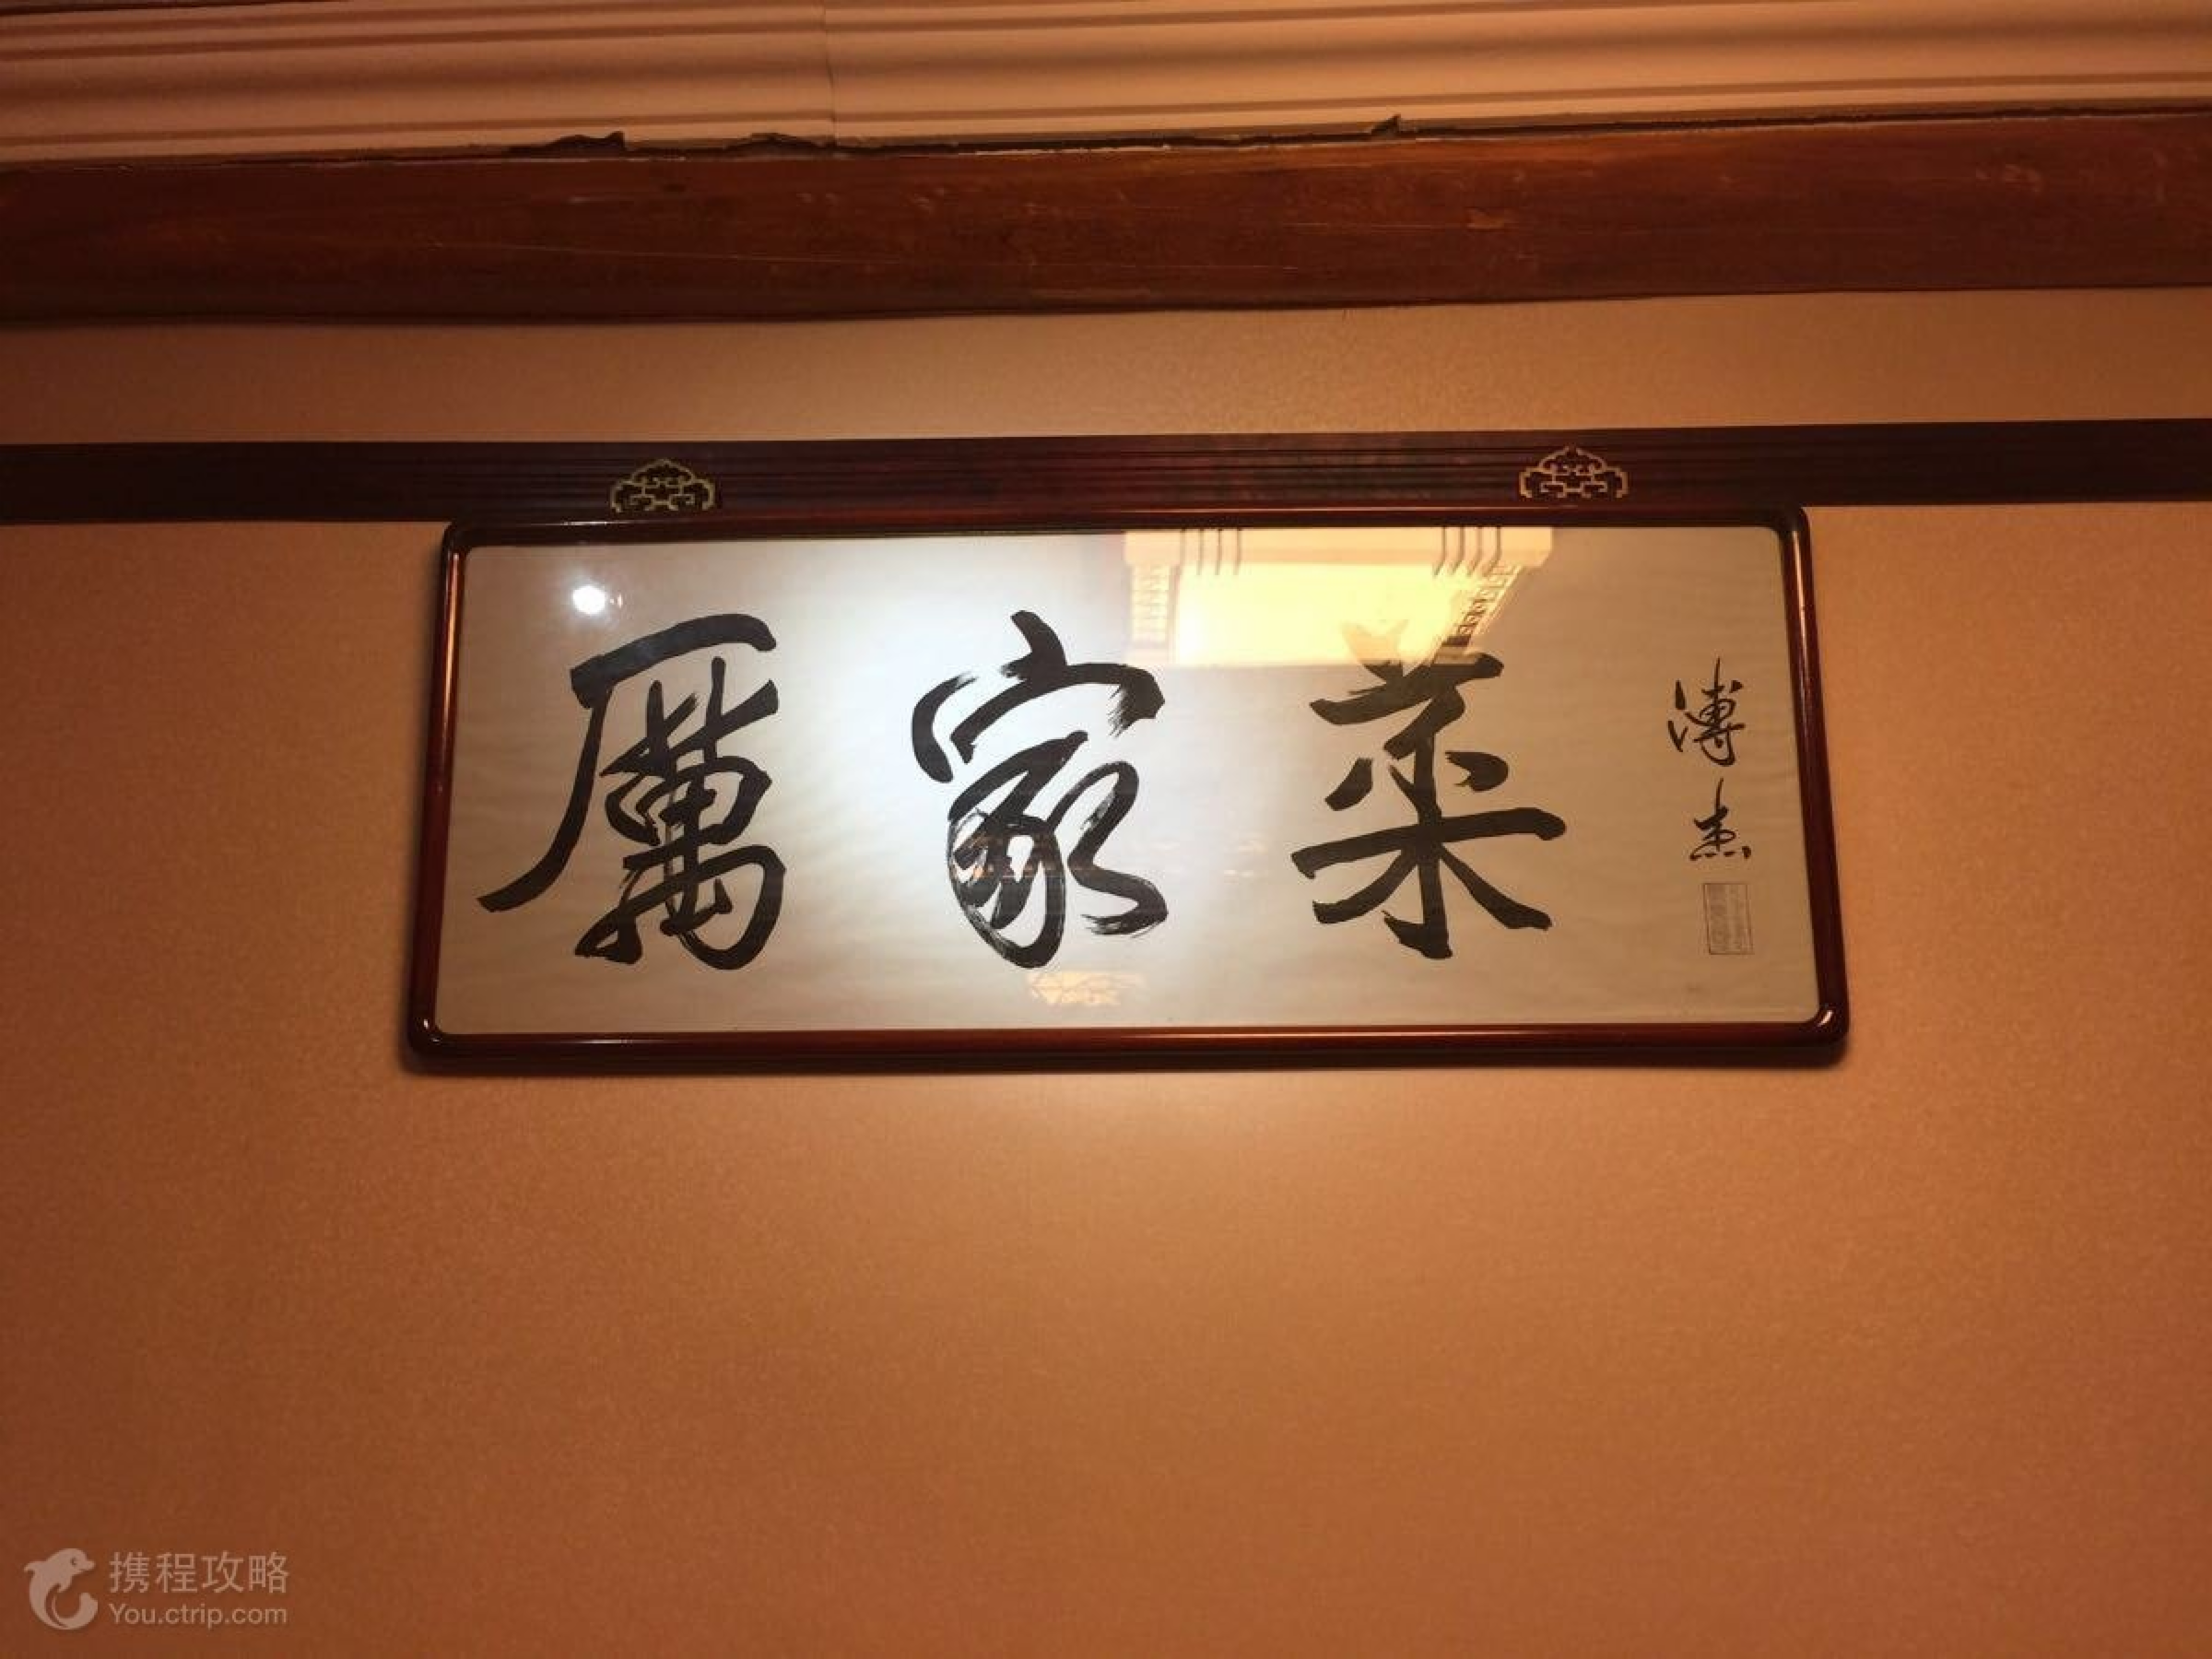 厲家菜
溥杰
携程攻略
You.ctrip.com